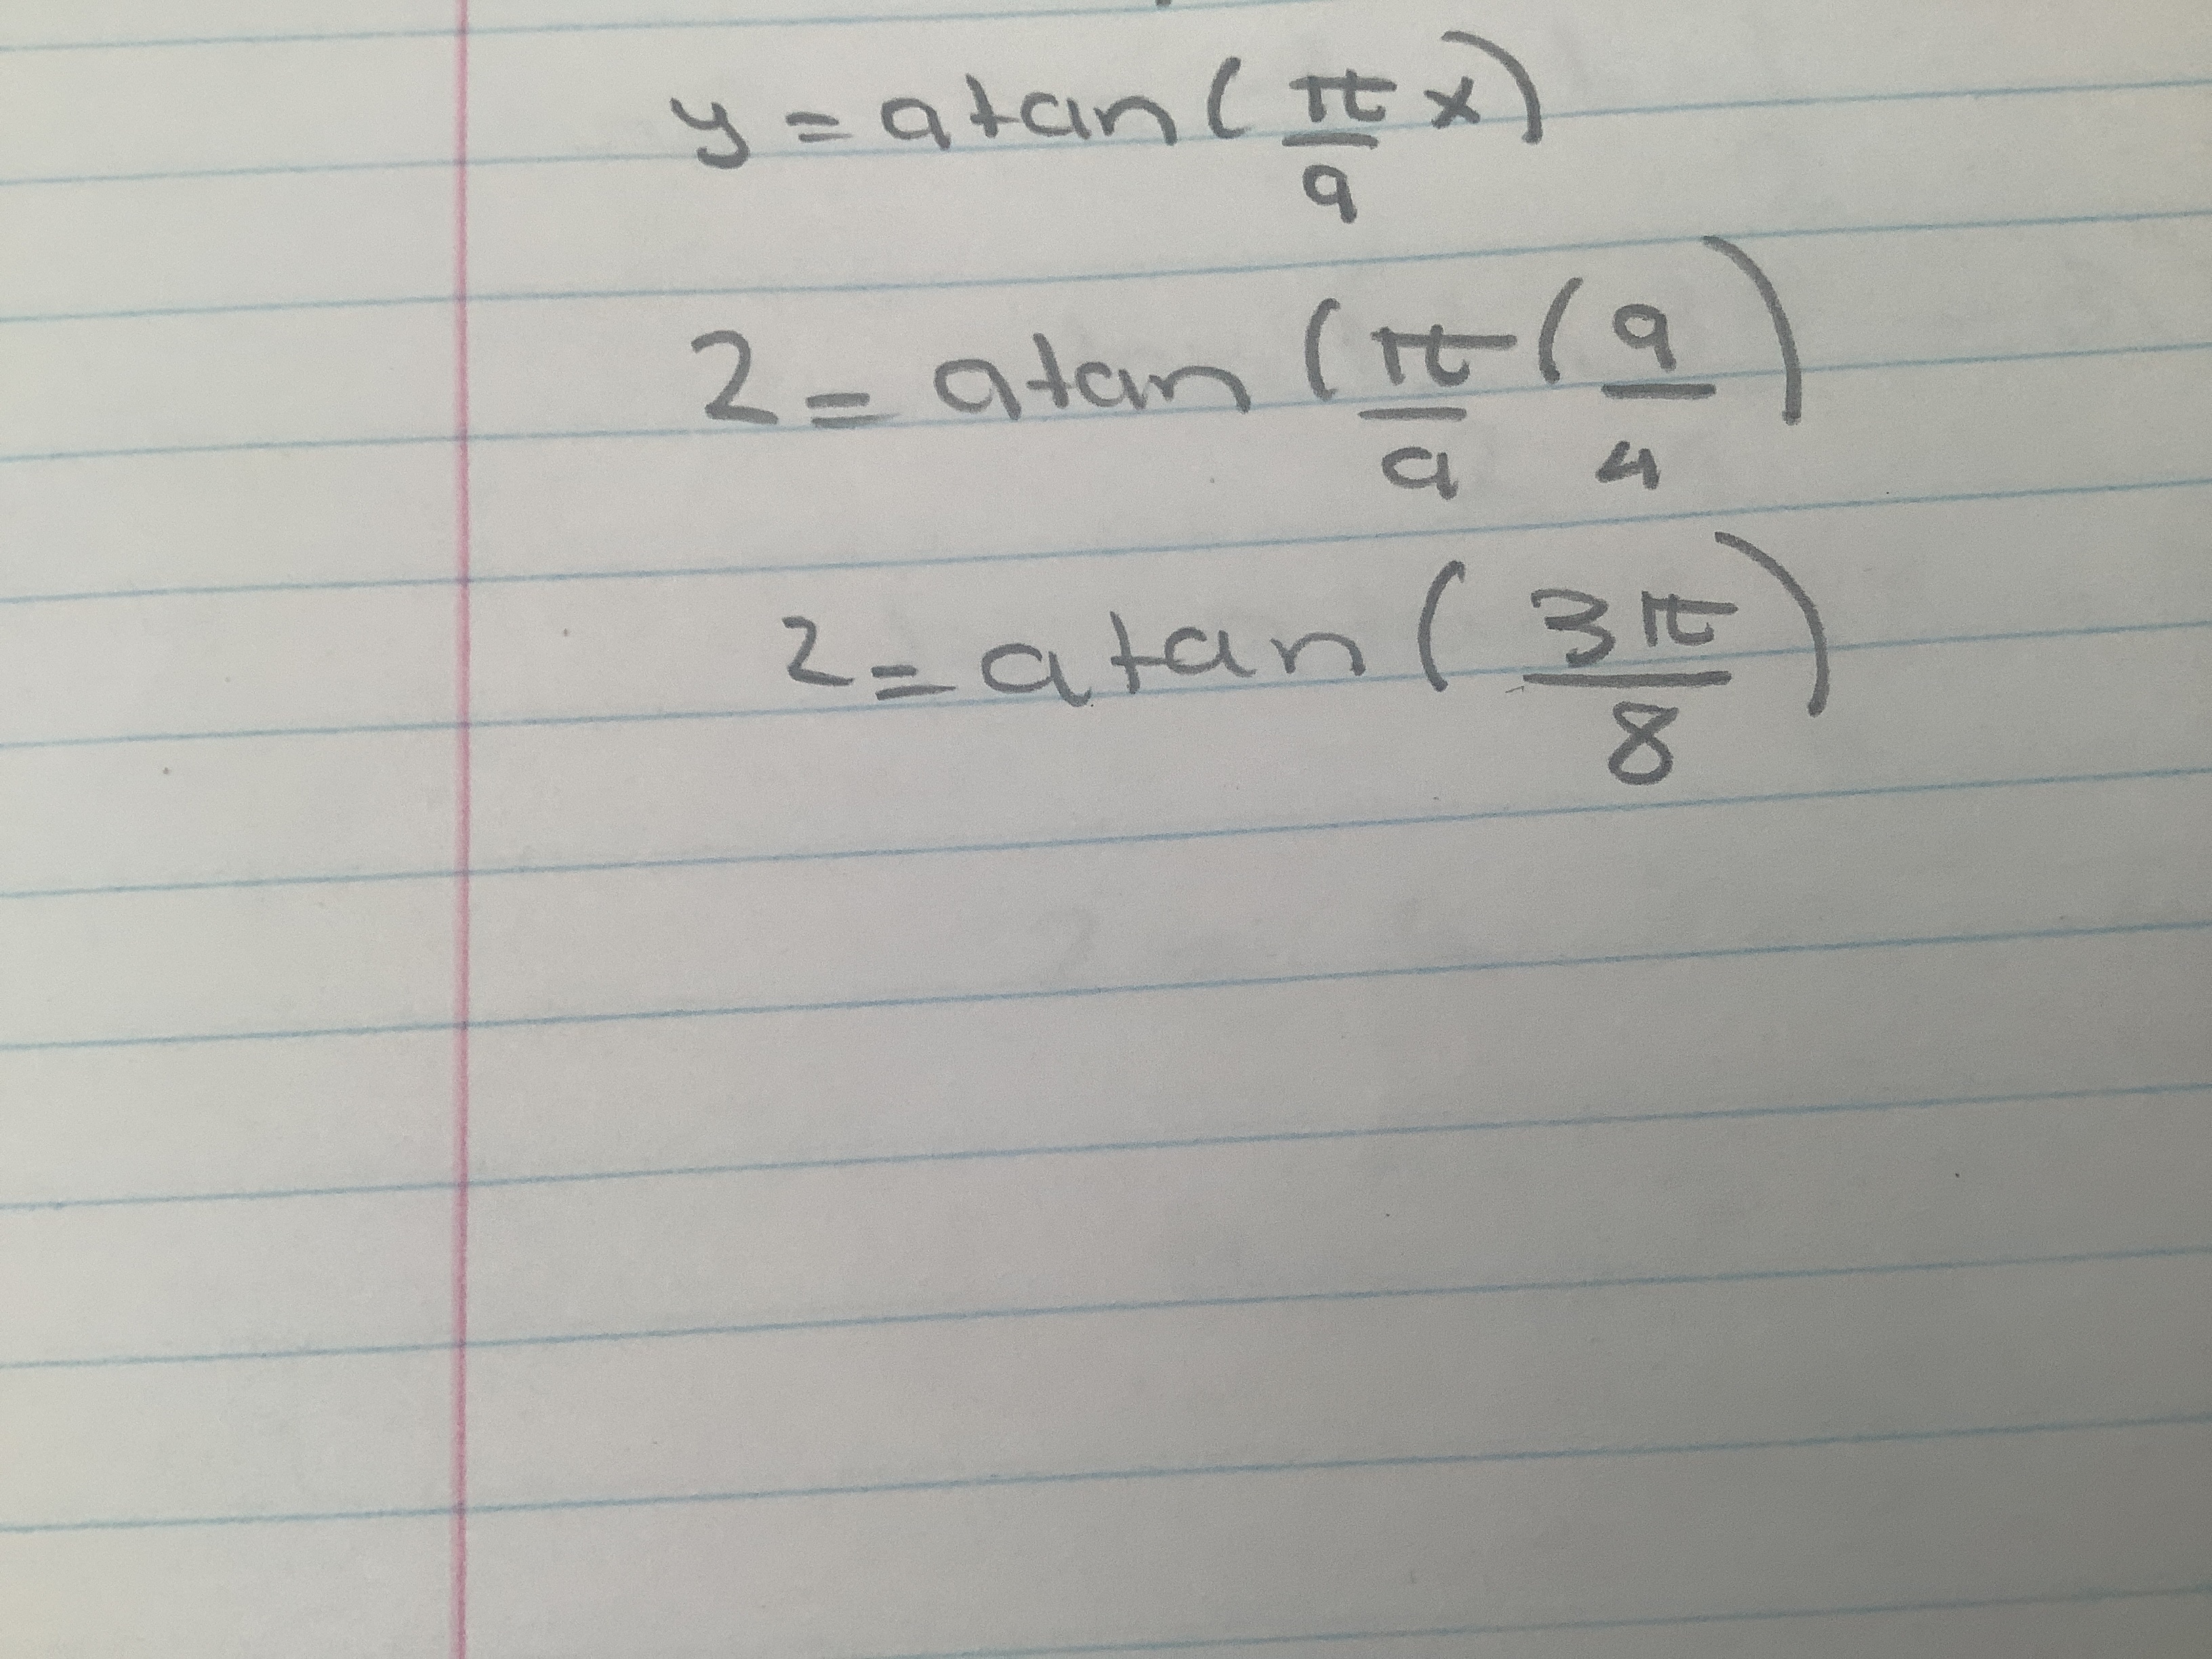 y = a tan ( π/9 x )
2 = a tan ( π/9 ( 9/4 )
2 = a tan ( 3π/8 )